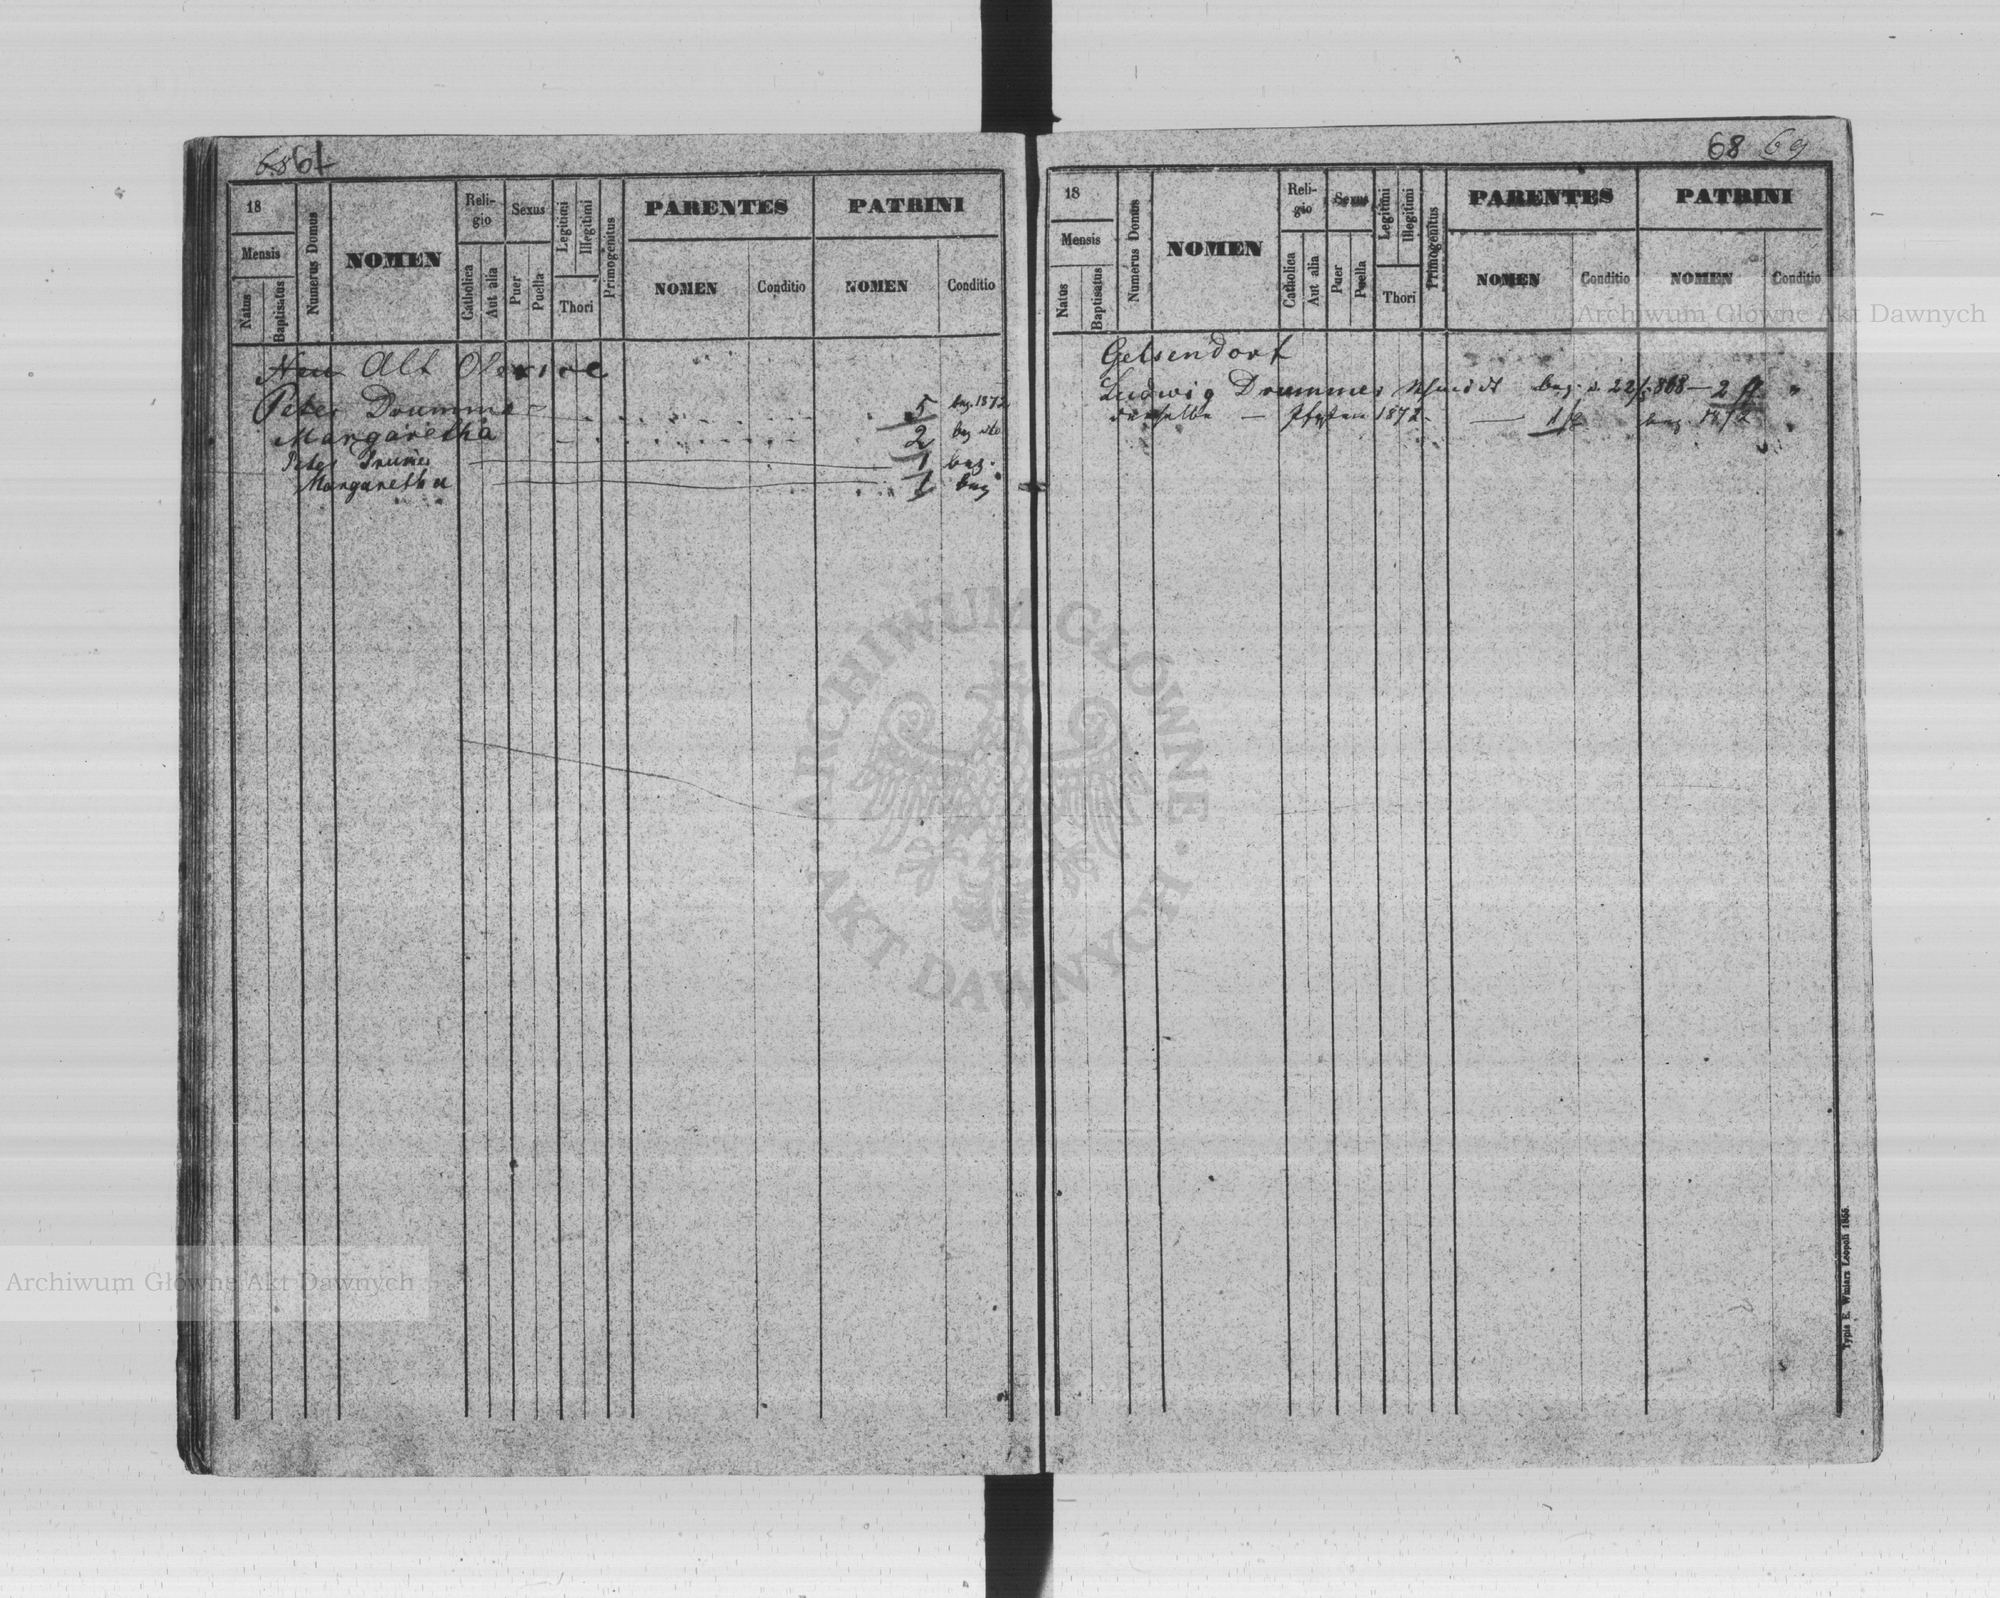 68 67
18
Mensis
Natus
Baptisatus
Numerus Domus
NOMEN
Religio
Catholica
Aut alia
Sexus
Puer
Puella
Legitimi
Illegitimi
Thori
Primogenitus
PARENTES
NOMEN
Conditio
PATRINI
NOMEN
Conditio
Neu Alt
Peter Drumme 5 bez. 1872
Margaretha 2 bez
Peter 1 bez.
Margaretha 1 bez
68 69
18
Mensis
Natus
Baptisatus
Numerus Domus
NOMEN
Religio
Catholica
Aut alia
Sexus
Puer
Puella
Legitimi
Illegitimi
Thori
Primogenitus
PARENTES
NOMEN
Conditio
PATRINI
NOMEN
Conditio
Gelsendorf
Ludwig Drummer bez. 2
derselbe — 1872 — bez 1872
Typis E. Winiarz Leopoli
Archiwum Główne Akt Dawnych
ARCHIWUM GŁÓWNE · AKT DAWNYCH ·
Archiwum Główne Akt Dawnych